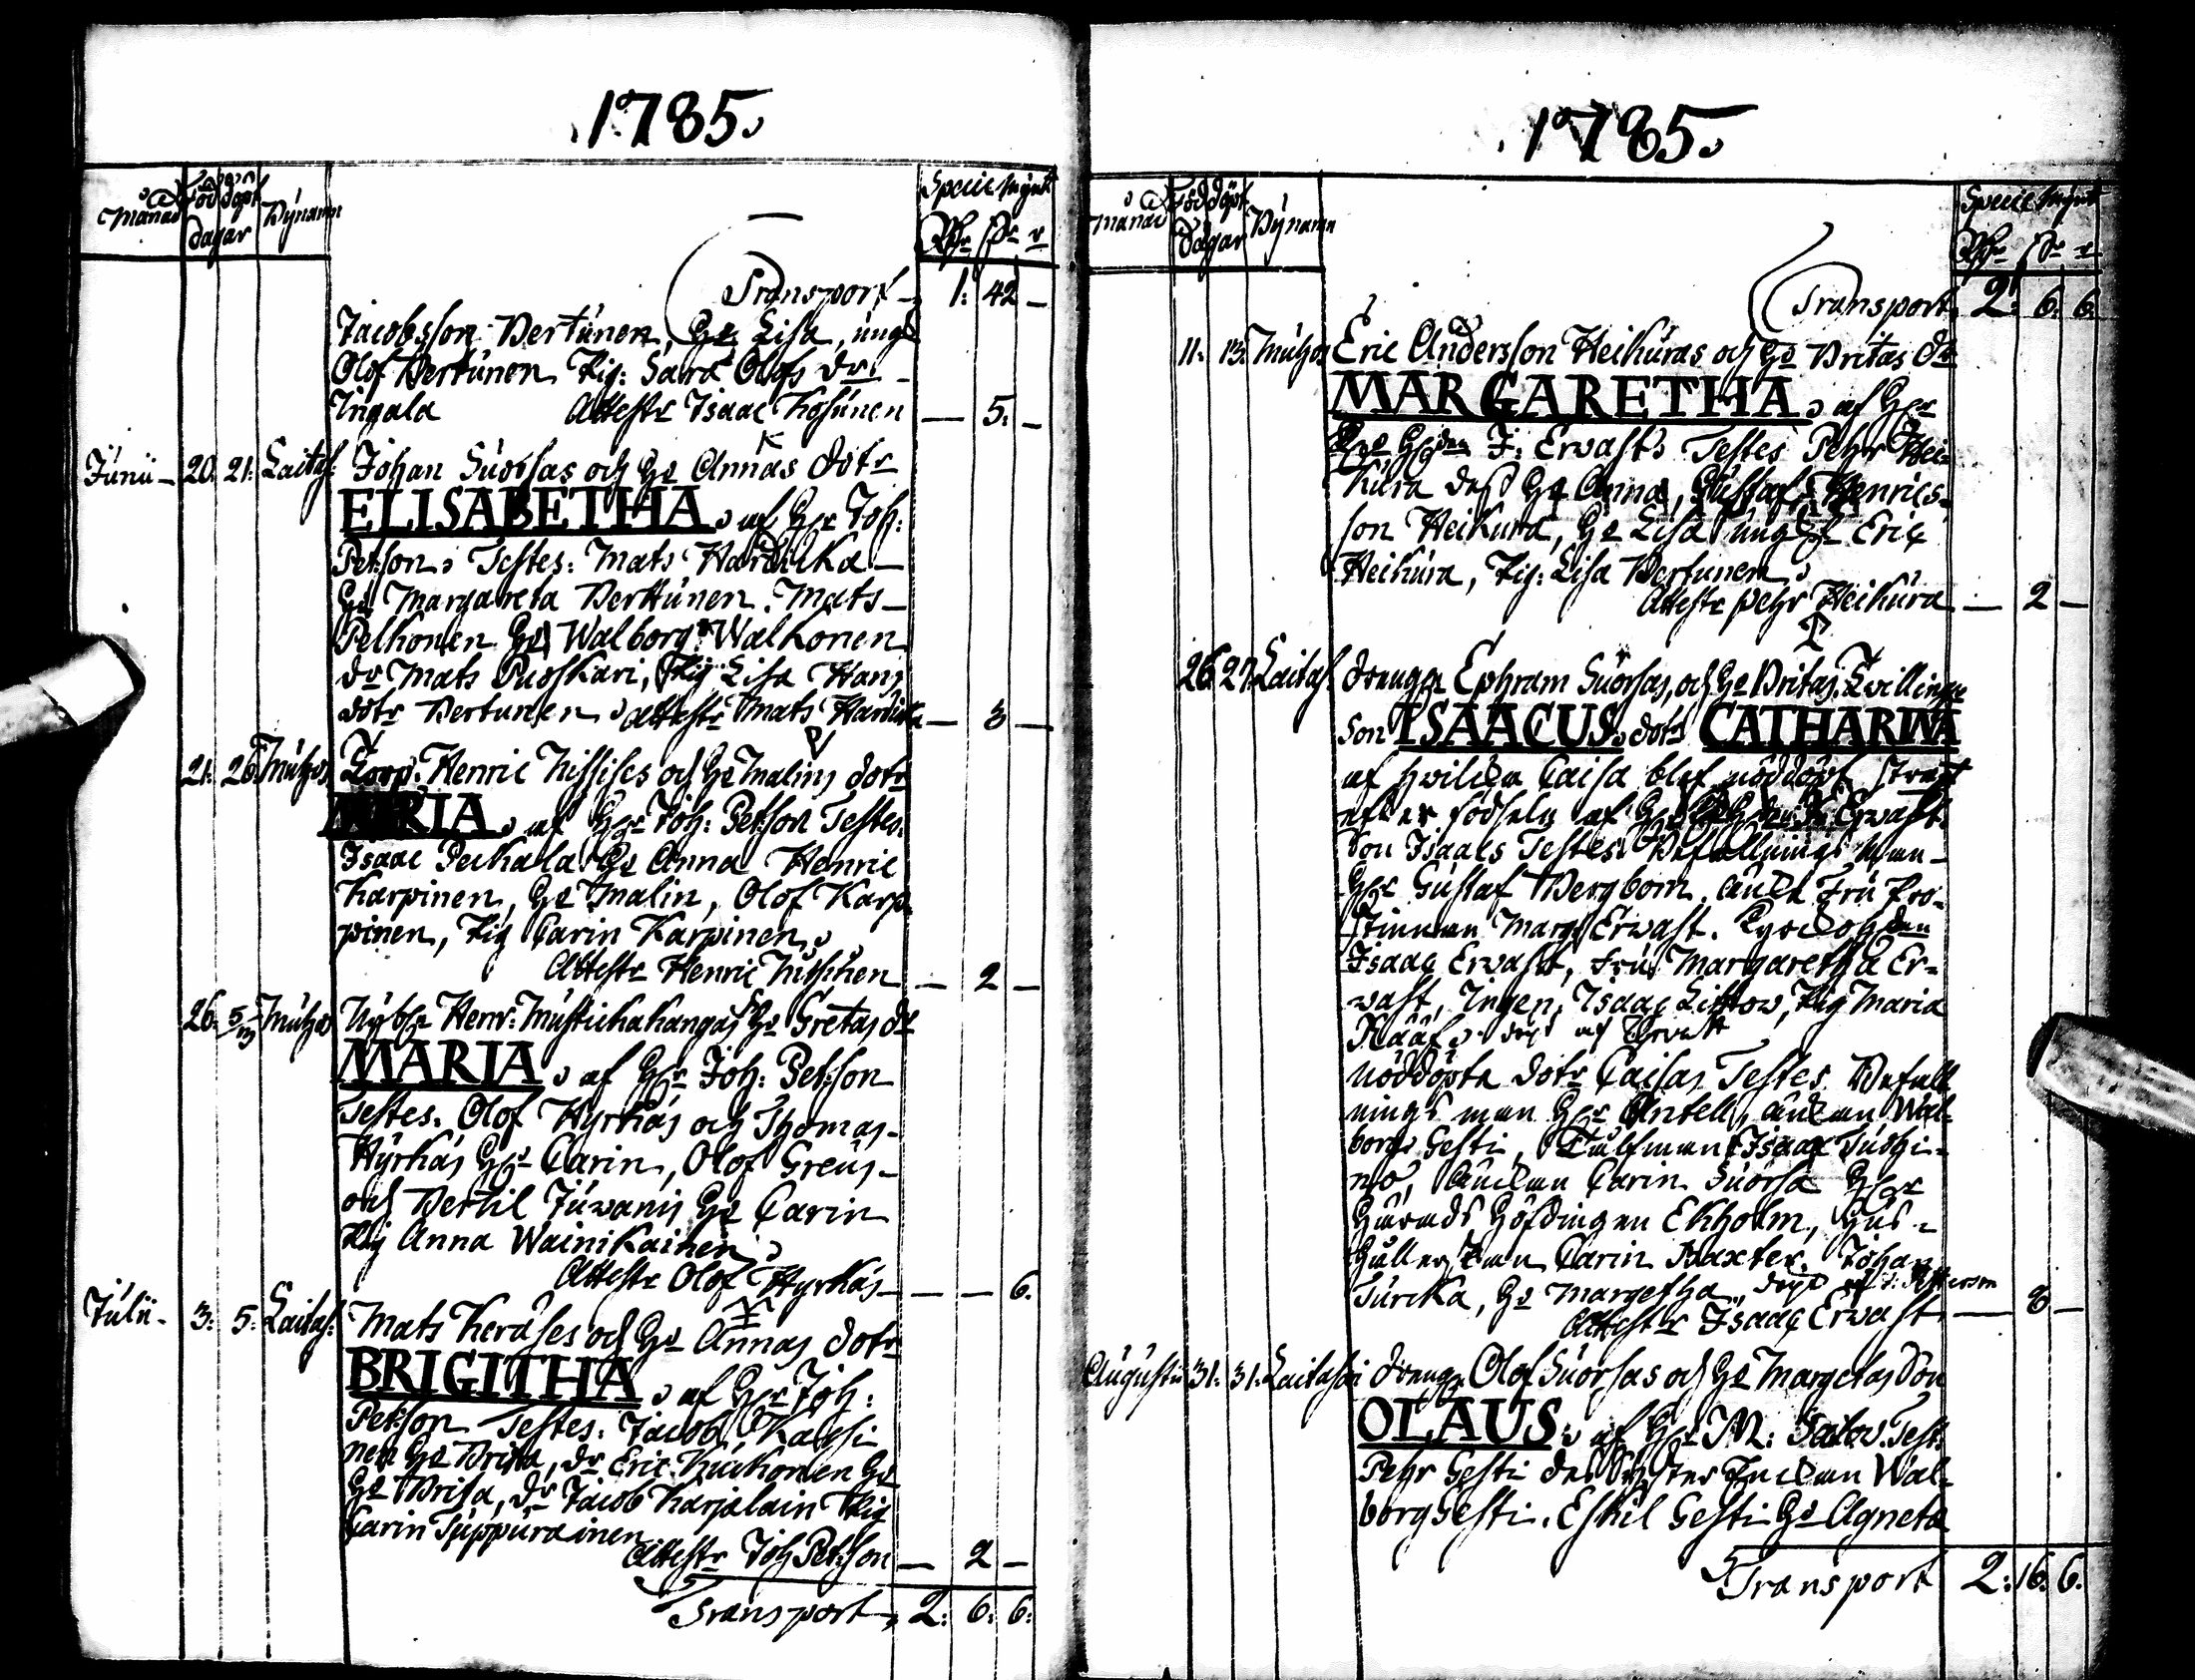 1785.
Månad
Född döpt
dagar
Bÿnamn
Specie Mÿnt
Transport – 1: 42 –
Jacobsson Vertunen, Hu Lisa, ungk
Olof Vertunen Pig: Sara Olofs dr
Ingala Attestr Isaac Kosunen – 5. –
Junii – 20. 21. Laitas: Johan Suorsas och Hu Annas dotr
ELISABETHA. af Hr Joh:
Petson. Testes: Mats Hardicka –
Hu Margareta Verttunen. Mats –
Pelkonen Hu Walborg Walkonen
dr Mats Puoskari, Pig Lisa Hans
dotr Vertunen. Attestr Mats Hardicka – 3 –
21. 26 Muhos Korp. Henric Nissises och Hu Malins dotr
MARIA. af Hr Joh: Petson Testes.
Isaac Peikala Hu Anna Henric
Karpinen, Hu Malin, Olof Karp
pinen, Pig Carin Karpinen.
Attestr Henric Nissinen – 2 –
26. 5/m Muhos Nybgr Henr: Mustickakangas Hu Gretas dr
MARIA. af Hr Joh: Petson
Testes. Olof Hyrkäs och Thomas –
Hyrkäs Carin, Olof Greus –
och Bertil Juwanis Hu Carin
Pig Anna Wainikainen.
Attestr Olof Hyrkäs – – 6.
Julii – 3: 5. Laitas: Mats Keräses och Hu Annas dotr
BRIGITHA. af Hr Joh:
Petson Testes: Jacob Kaissi
nen Hu Brita, dr Eric Kuckonen Hu
Hu Brita, dr Jacob Karjalain Pig
Carin Tuppurainen
Attestr Joh Petson – 2 –
Transport, 2: 6: 6:
1785.
Månad
Född döpt
Dagar
Bÿnamn
Specie Mÿnt
Transport 2: 6. 6.
11. 13. Muhos Eric Andersson Heikuras och Hu Britas dr
MARGARETHA. af Hr
J: Erwast. Testes Pehr Hei-
kura dess Hu Anna, Gustaf Henrics-
son Heikura, Hu Lisa ungk Eric
Heikura, Pig: Lisa Vertunen.
Attestr Pehr Heikura – 2 –
26 27. Laitas: Dreng Ephram Suorsas, och Hu Britas Tvillingar
Son ISAACUS. dotr CATHARINA
af hvilcka Caisa blef nöddöpt strax
efter födseln af Erwast.
Son Isaacs Testes. Befallnings Man –
Hr Gustaf Bergbom. Fru Pro-
stinnan Marg Erwast.
Isaac Erwast, Fru Margaretha Er-
wast, Ingen. Isaac Listow, Pig Maria
Rääf.
nöddöpta dotr Caisas Testes. Befall
nings man Hr Antell, Wal-
borg Gesti, Isaac Tuohi-
no, Carin Suorsa Hr
Härads Höfdingen Ekholm, Hus-
Carin Baxter. Johan
Turcka, Hu Margetha,
Attestr Isaac Erwast – 8 –
Augusti 31. 31. Laitasari Dreng Olof Suorsas och Hu Margetas Son
OLAUS. af Hr M: Test.
Pehr Gesti des Syster Wal-
borg Gesti. Eskil Gesti Hu Agneta
Transport 2: 16. 6.